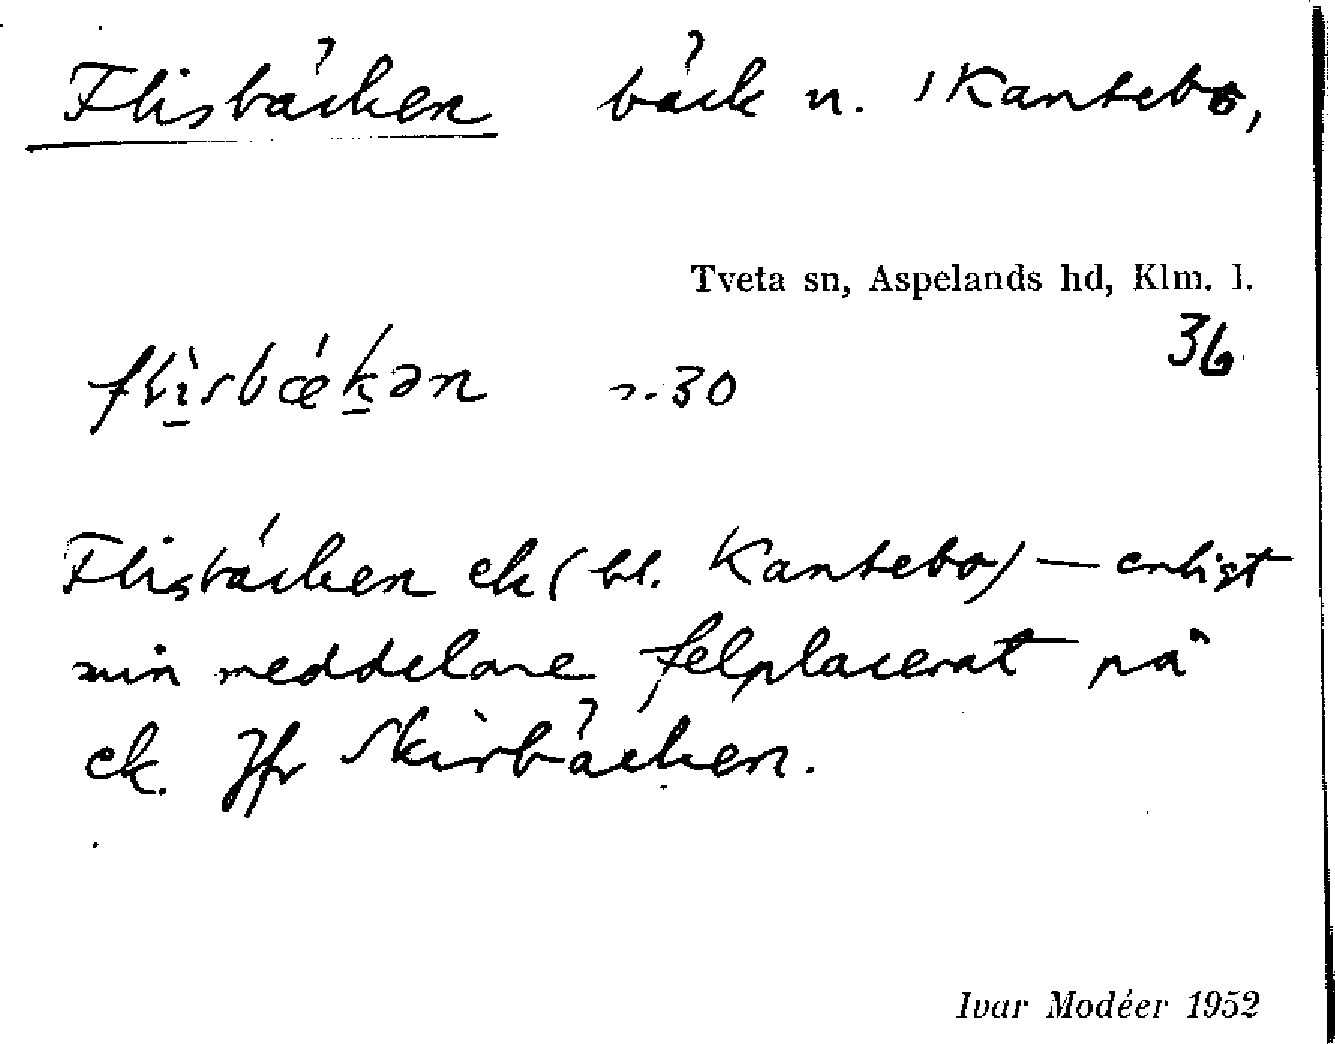 Flisbäcken bäck n. Kantebo,
Tveta sn, Aspelands hd, Klm. l.
36
flìsbækən n. 30
Flisbäcken ek (bl. Kantebo) — enligt
min meddelare felplacerat på
ek. Jfr Skirbäcken.
Ivar Modéer 1952